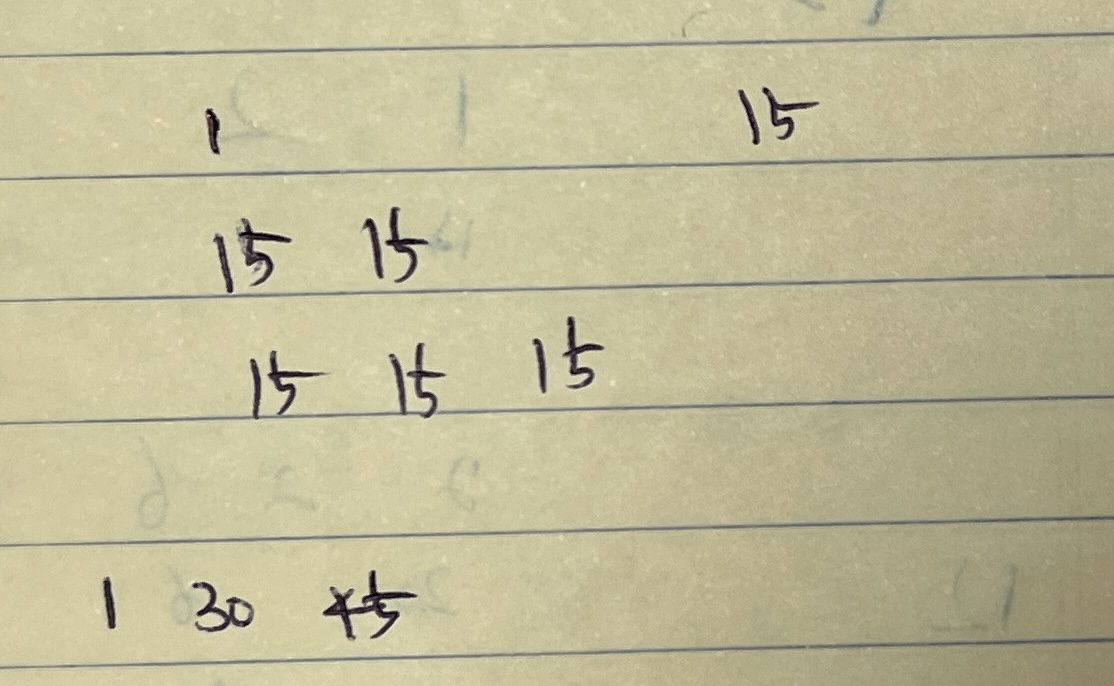 1 15
15 15
15 15 15
1 30 45